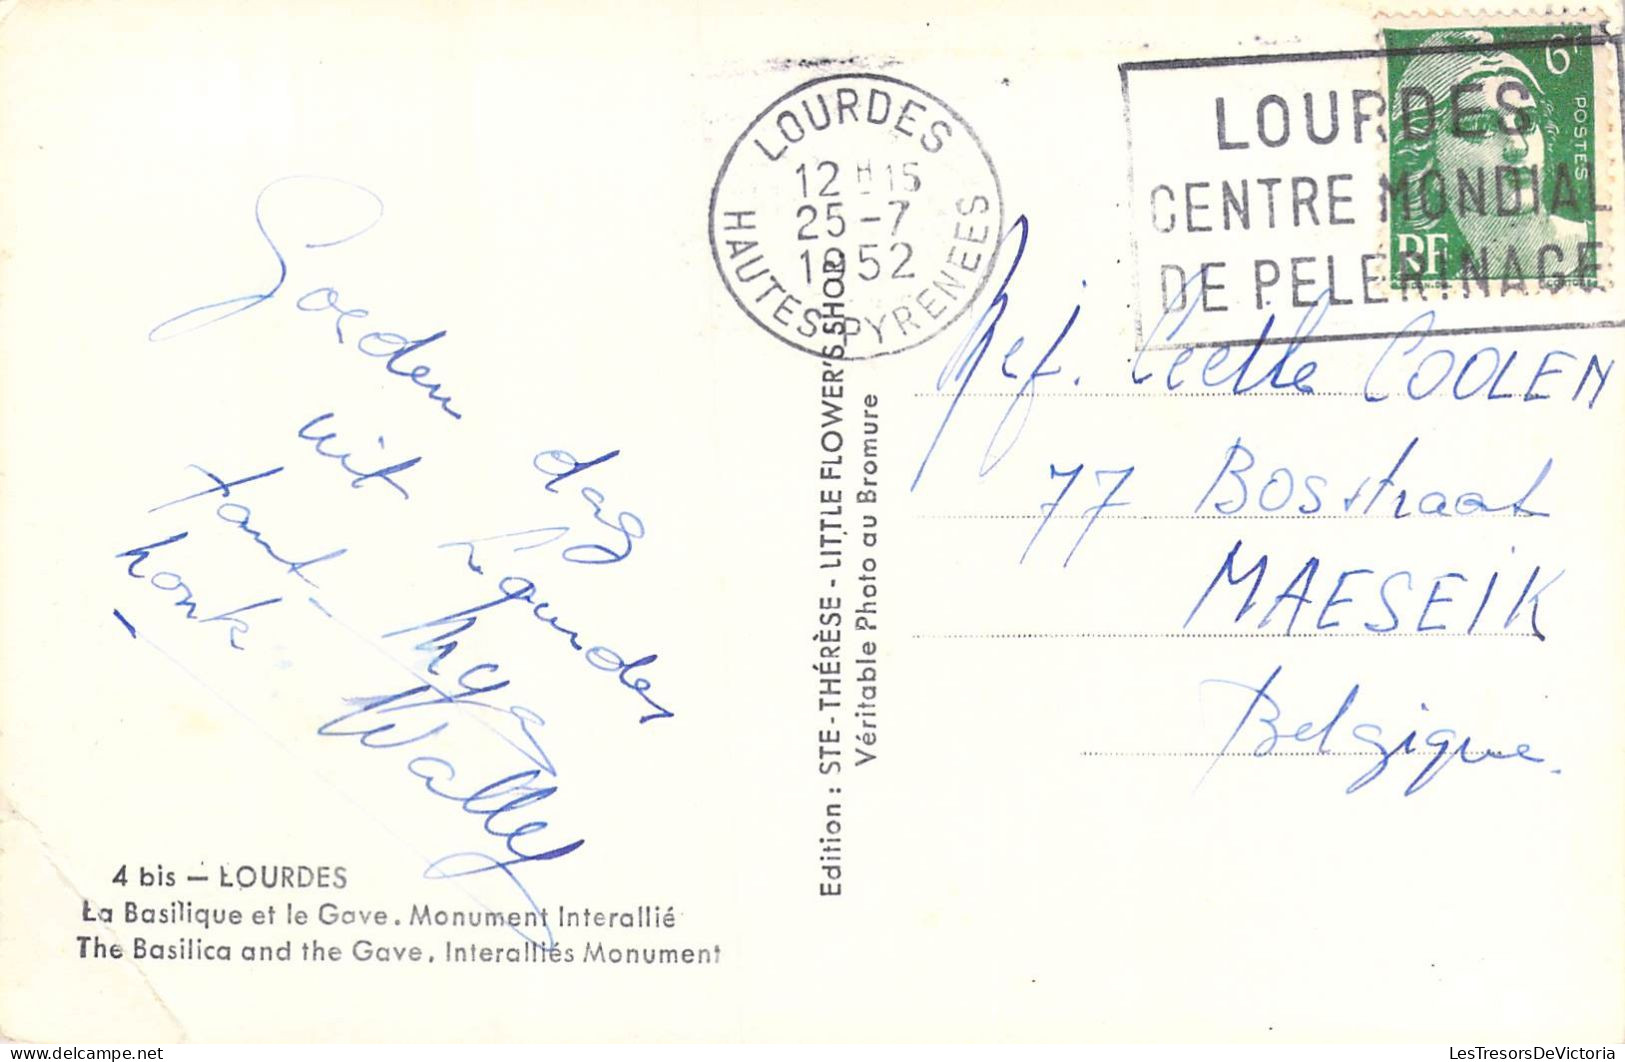 LOURDES
12 H 15
25 - 7
1952
HAUTES PYRENEES
LOURDES
CENTRE MONDIAL
DE PELERINAGE
6F
POSTES
RF
Goeden dag
uit Lourdes
tant
Wallef
Mej. COOLEN
77 Bosstraat
MAESEIK
Belgique.
Edition : STE - THÉRÈSE - LITTLE FLOWER'S SHOP
Véritable Photo au Bromure
4 bis — LOURDES
La Basilique et le Gave. Monument Interallié
The Basilica and the Gave. Interalliés Monument
LesTresorsDeVictoria